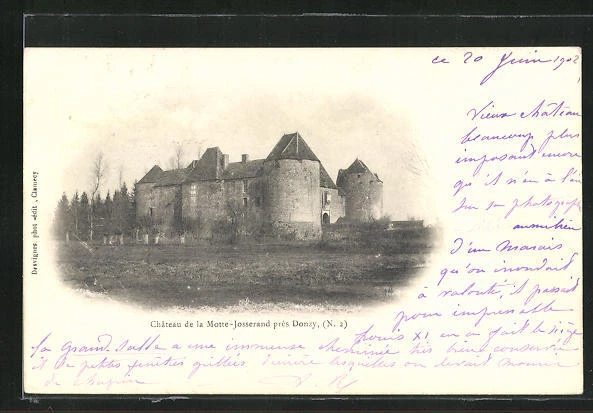 ce 20 Juin 1902
Vieux château
beaucoup plus
imposant encore
qu'il n'en a l'air
sur sa photographie
au milieu
d'un marais
qu'on inondait
à volonté, il passait
pour imprenable
Louis XI en a fait le siège
La Grand Salle a une immense cheminée très bien conservée
et de petites fenêtres grillées derrière lesquelles on devait mourir
de chagrin
Château de la Motte-Josserand près Donzy, (N. 2)
Desvignes, phot.-édit., Clamecy